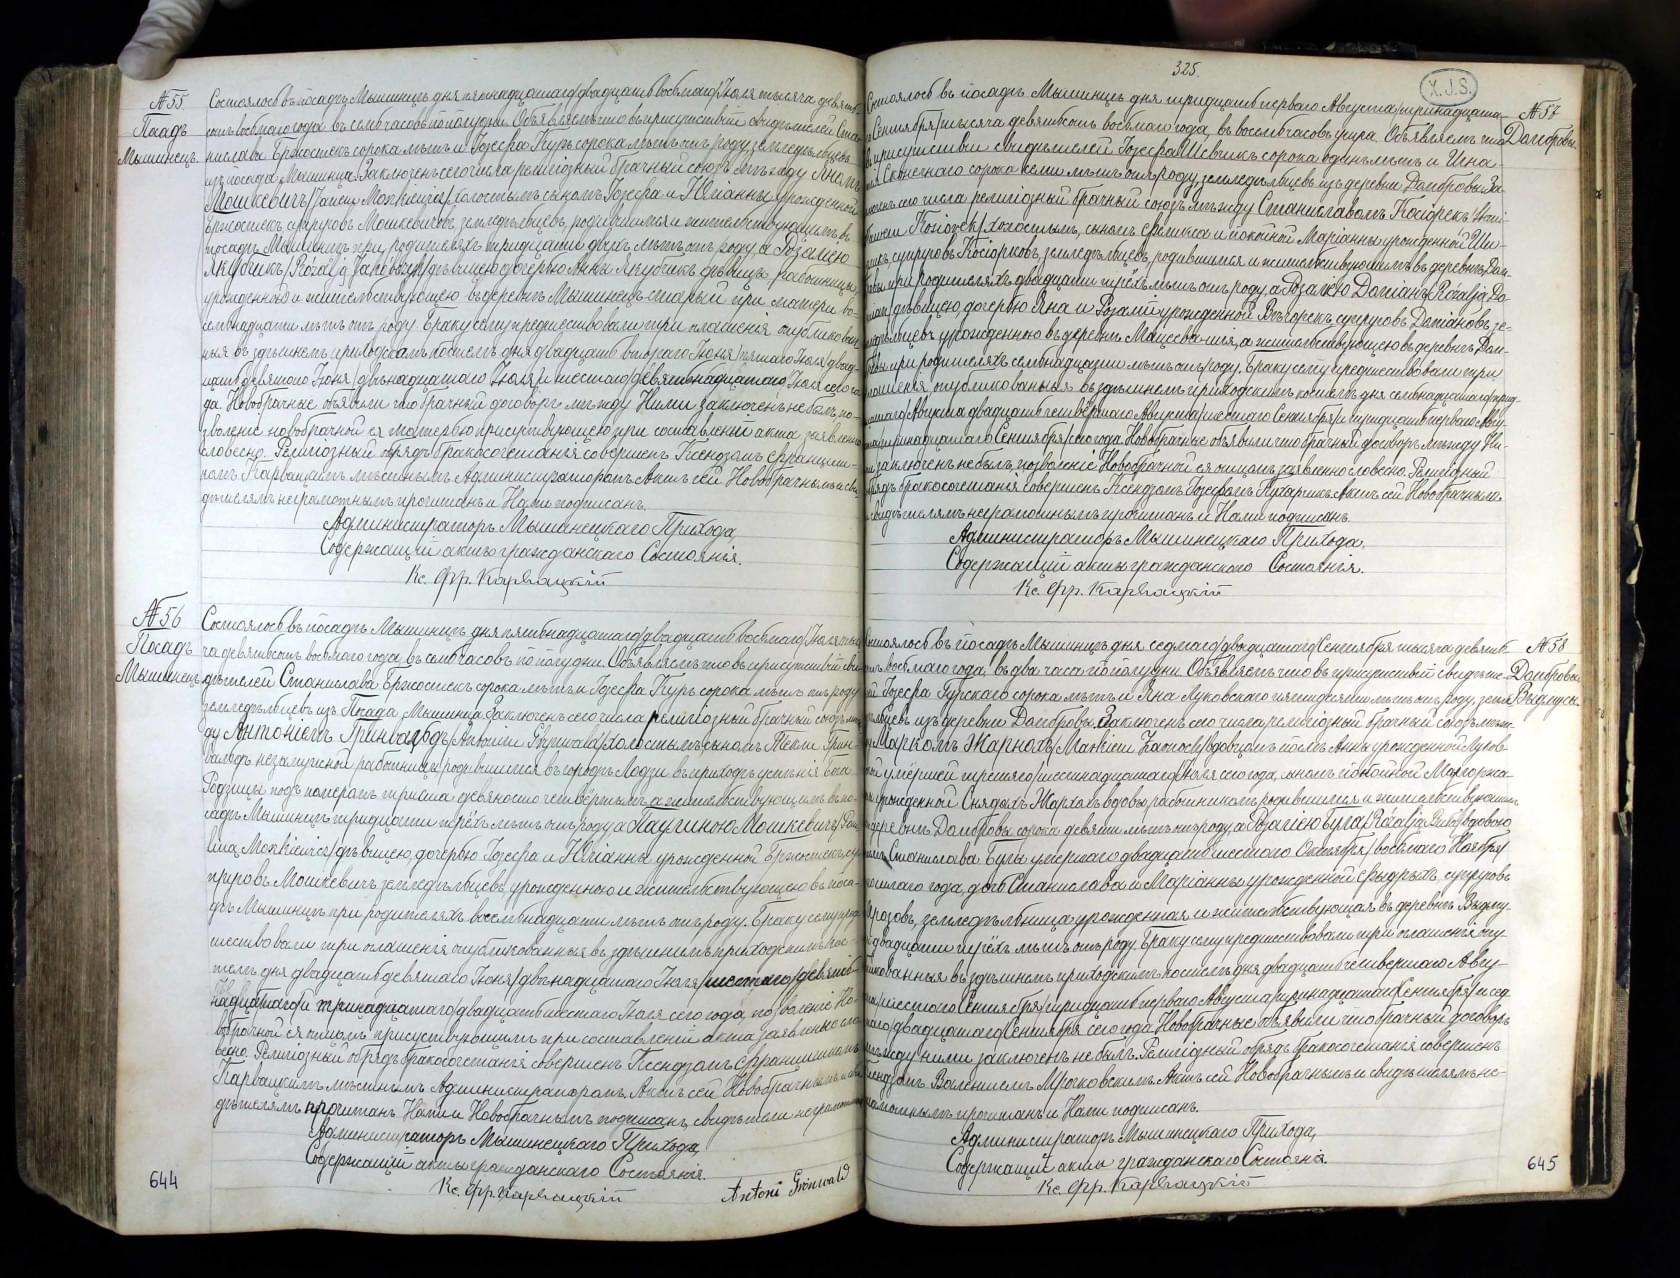 № 55
Посадъ
Мышинецъ.
Состоялось въ посадѣ Мышинцѣ дня пятнадцатаго/двадцать восьмаго/Іюля тысяча девять-
сотъ восьмаго года въ семь часовъ по полудни. Объявляемъ что въ присутствіи свидѣтелей Ста-
нислава Бржостекъ сорока лѣтъ и Іозефа Куръ сорока лѣтъ отъ роду земледѣльцевъ
изъ посада Мышинца. Заключенъ сего числа религіозный брачный союзъ между Яномъ
Мошкевичъ/Janem холостымъ сыномъ Іозефа и Юліанны урожденной
Бржостекъ супруговъ Мошкевичъ земледѣльцевъ, родившимся и жительствующимъ въ
посадѣ Мышинцѣ при родителяхъ тридцати двухъ лѣтъ отъ роду, а Розаліею
Якубчикъ дѣвицею дочерью Анны Якубчикъ дѣвицы работницы,
урожденною и жительствующею въ деревнѣ Мышинецъ-старый при матери во-
семнадцати лѣтъ отъ роду. Браку сему предшествовали три оглашенія опубликован
ныя въ здѣшнемъ приходскомъ костелѣ дня двадцать втораго Іюня/пятаго Іюля/двад-
цать девятаго Іюня/двѣнадцатаго Іюля/и шестаго/девятнадцатаго/Іюля сего го
да. Новобрачные объявили что брачный договоръ между Ними заключенъ не былъ, по-
зволеніе новобрачной ея матерью присутствующею при составленіи акта заявлено
словесно. Религіозный обрядъ бракосочетанія совершенъ Ксендзомъ Францишк-
омъ Карвацкимъ мѣстнымъ Администраторомъ. Актъ сей Новобрачнымъ и сви
дѣтелямъ неграмотнымъ прочитанъ и Нами подписанъ.
Администраторъ Мышинецкаго Прихода,
Содержащій акты гражданскаго Состоянія.
Кс. Фр. Карвацкій
№ 56
Посадъ
Мышинецъ
Состоялось въ посадѣ Мышинцѣ дня пятнадцатаго/двадцать восьмаго/Іюля тыся
ча девятьсотъ восьмаго года, въ семь часовъ по полудни. Объявляемъ что въ присутствіи сви
дѣтелей Станислава Бржостекъ сорока лѣтъ и Іозефа Куръ сорока лѣтъ отъ роду
земледѣльцевъ изъ Посада Мышинца. Заключенъ сего числа религіозный брачный союзъ меж
ду Антоніемъ Гринвальдъ/Antonim холостымъ сыномъ Теклы Грин-
вальдъ незамужной работницы родившимся въ городѣ Лодзи въ приходѣ успѣнія Бога
Родзицы подъ номеромъ триста девяносто четвёртымъ а жительствующимъ въ по-
садѣ Мышинцѣ тридцати трёхъ лѣтъ отъ роду, а Паулиною Мошкевичъ/Pau
liną дѣвицею, дочерью Іозефа и Юліанны урожденной Бржостекъ су-
пруговъ Мошкевичъ земледѣльцевъ, урожденною и жительствующею въ поса-
дѣ Мышинцѣ при родителяхъ восемнадцати лѣтъ отъ роду. Браку сему пред
шествовали три оглашенія опубликованныя въ здѣшнемъ приходскомъ кос-
телѣ дня двадцать девятаго Іюня/двѣнадцатаго Іюля/шестаго/девят-
надцатаго/и тринадцатаго/двадцать шестаго Іюля сего года, позволеніе Но-
вобрачной ея отцомъ присутствующимъ при составленіи акта заявлено сло
весно. Религіозный обрядъ бракосочетанія совершенъ Ксендзомъ Францишкомъ
Карвацкимъ мѣстнымъ Администраторомъ. Актъ сей Новобрачнымъ и сви
дѣтелямъ прочитанъ Нами и Новобрачнымъ подписанъ, свидѣтели неграмотны
Администраторъ Мышинецкаго Прихода,
Содержащій акты гражданскаго Состоянія.
Кс. Фр. Карвацкій
Antoni Grünwald
644
325.
X.J.S.
№ 57
Домбровы.
Состоялось въ посадѣ Мышинцѣ дня тридцать перваго Августа/тринадцата-
го Сентября/тысяча девятьсотъ восьмаго года, въ восемь часовъ утра. Объявляемъ что
въ присутствіи свидѣтелей Іозефа Шевчикъ сорока одинъ лѣтъ и Игна-
сорока семи лѣтъ отъ роду, земледѣльцевъ изъ деревни Домбровы. За
ключенъ сего числа религіозный брачный союзъ между Станиславомъ Косіорекъ/Stani
sławem Kosiorek/холостымъ, сыномъ Феликса и покойной Маріанны урожденной
супруговъ Косіорковъ, земледѣльцевъ, родившимся и жительствующимъ въ деревнѣ Дом-
бровы при родителяхъ двадцати трёхъ лѣтъ отъ роду, а Розаліею Даміанъ/Rozalją Da
mian/дѣвицею, дочерью Яна и Розаліи урожденной супруговъ Даміановъ зе-
мледѣльцевъ урожденною въ деревнѣ а жительствующею въ деревнѣ Дом-
бровы при родителяхъ семнадцати лѣтъ отъ роду. Браку сему предшествовали три
оглашенія опубликованыя въ здѣшнемъ приходскомъ костелѣ дня семнадцатаго/трид-
цатаго/Августа двадцать четвёртаго Августа/шестаго Сентября/и тридцать перваго Авгу-
ста/тринадцатаго Сентября/сего года. Новобрачные объявили что брачный договоръ между Ни-
ми заключенъ не былъ, позволеніе Новобрачной ея отцомъ заявленно словесно. Религіозный
обрядъ бракосочетанія совершенъ Ксендзомъ Іозефомъ Кухарчикъ. Актъ сей Новобрачнымъ
и свидѣтелямъ неграмотнымъ прочитанъ и Нами подписанъ.
Администраторъ Мышинецкаго Прихода.
Содержащій акты гражданскаго Состоянія.
Кс. Фр. Карвацкій
№ 58
Домбровы
Состоялось въ посадѣ Мышинцѣ дня седмаго/двадцатаго/Сентября тысяча девять
сотъ восьмаго года, въ два часа по полудни. Объявляемъ что въ присутствіи свидѣте-
лей Іозефа сорока лѣтъ и Яна Луковскаго пятидесяти лѣтъ отъ роду, земле
дѣльцевъ изъ деревни Домбровы. Заключенъ сего числа религіозный брачный союзъ меж-
ду Маркомъ вдовцомъ послѣ Анны урожденной
умершей третяго/шестнадцатаго/Іюля сего года, сыномъ покойной Маргоржа-
ты урожденной вдовы, работникомъ родившимся и жительствующимъ
въ деревнѣ Домбровы сорока девяти лѣтъ отъ роду, а Розаліею Була вдовою
послѣ Станислава Булы умершаго двадцать шестаго Октября/восьмаго Ноября
прошлаго года, дочь Станислава и Маріанны урожденной Фыдрыхъ супруговъ
земледѣльница урожденная и жительствующая въ деревнѣ
двадцати трёхъ лѣтъ отъ роду. Браку сему предшествовали три оглашенія опу
бликованныя въ здѣшнемъ приходскимъ костелѣ дня двадцать четвертаго Авгу-
ста/шестаго Сентября/тридцать перваго Августа/тринадцатаго Сентября/и сед
маго/двадцатаго/Сентября сего года. Новобрачные объявили что брачный договоръ
между ними заключенъ не былъ. Религіозный обрядъ бракосочетанія совершенъ
Ксендзомъ Валентіемъ Мрочковскимъ. Актъ сей Новобрачнымъ и свидѣтелямъ не-
грамотнымъ прочитанъ и Нами подписанъ.
Администраторъ Мышинецкаго Прихода,
Содержащій акты гражданскаго Состоянія.
Кс. Фр. Карвацкій
645